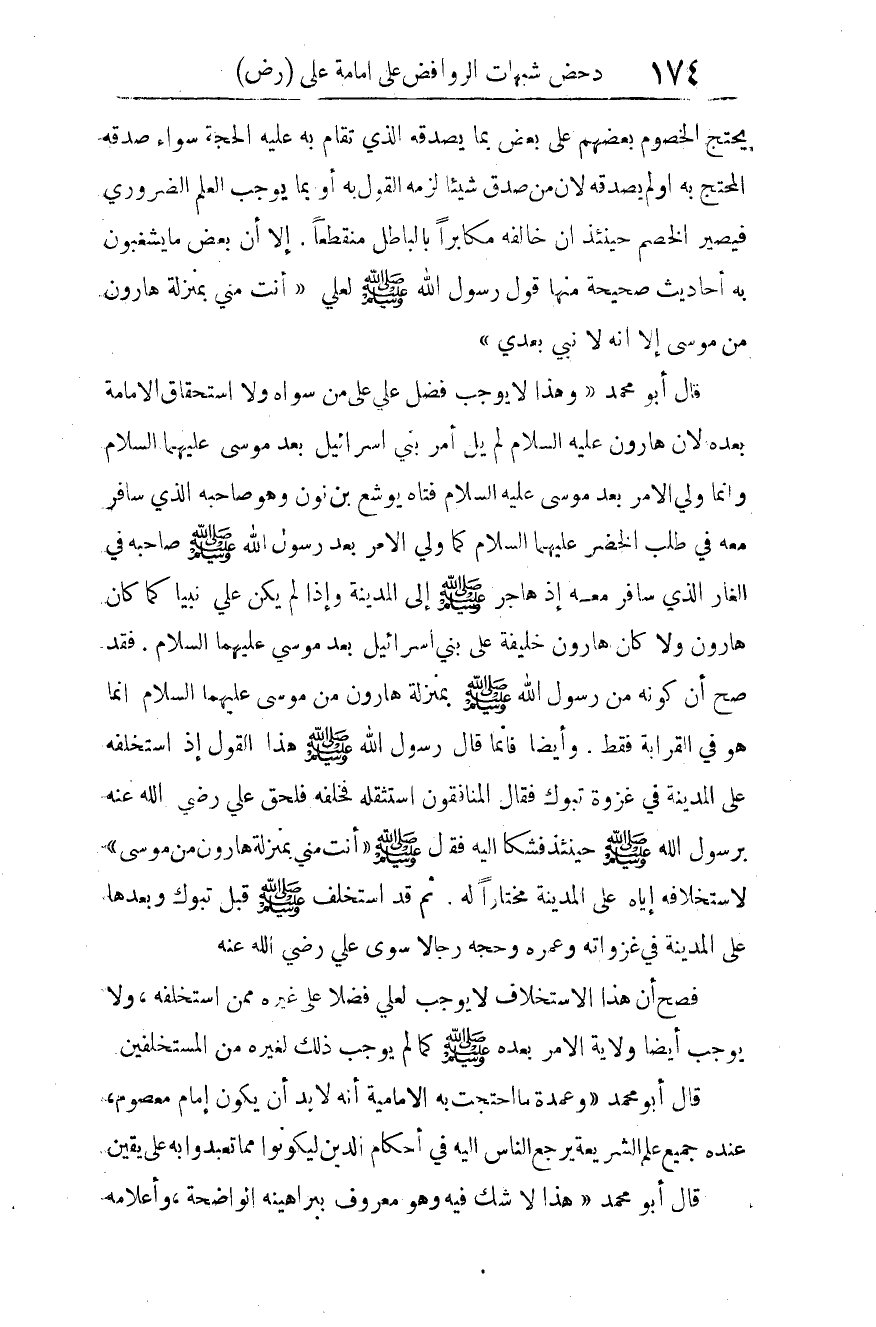 ١٧٤ دحض شبهات الروافض على امامة على (رض)
يحتج الخصوم بعضهم على بعض بما يصدقه الذي تقام به عليه الحجة سواء صدقه
المحتج به اولم يصدقه لان من صدق شيئا لزمه القول به أو بما يوجب العلم الضروري
فيصير الخصم حينئذ ان خالفه مكابراً بالباطل منقطعاً . إلا أن بعض مايشغبون
به أحاديث صحيحة منها قول رسول الله ﷺ لعلي « أنت مني بمنزلة هارون
من موسى إلا انه لا نبي بعدي »
قال أبو محمد « وهذا لايوجب فضل علي على من سواه ولا استحقاق الامامة
بعده لان هارون عليه السلام لم يل أمر بني اسرائيل بعد موسى عليهما السلام
وانما ولي الامر بعد موسى عليه السلام فتاه يوشع بن نون وهو صاحبه الذي سافر
معه في طلب الخضر عليهما السلام كما ولي الامر بعد رسول الله ﷺ صاحبه في
الغار الذي سافر معه إذ هاجر ﷺ إلى المدينة وإذا لم يكن علي نبيا كما كان
هارون ولا كان هارون خليفة على بني اسرائيل بعد موسي عليهما السلام . فقد
صح أن كونه من رسول الله ﷺ بمنزلة هارون من موسى عليهما السلام انما
هو في القرابة فقط . وأيضا فانما قال رسول الله ﷺ هذا القول إذ استخلفه
على المدينة في غزوة تبوك فقال المنافقون استثقله فخلفه فلحق علي رضي الله عنه
برسول الله ﷺ حينئذ فشكا اليه فقل ﷺ «أنت مني بمنزلة هارون من موسى»
لاستخلافه إياه على المدينة مختاراً له . ثم قد استخلف ﷺ قبل تبوك وبعدها
على المدينة في غزواته وعمره وحجه رجالا سوى علي رضي الله عنه
فصح أن هذا الاستخلاف لايوجب لعلي فضلا على غيره ممن استخلفه ، ولا
يوجب أيضا ولاية الامر بعده ﷺ كما لم يوجب ذلك لغيره من المستخلفين
قال أبو محمد «وعمدة مااحتجت به الامامية أنه لابد أن يكون إمام معصوم ،
عنده جميع علم الشريعة يرجع الناس اليه في أحكام الدين ليكونوا مما تعبدوا به على يقين
قال أبو محمد « هذا لا شك فيه وهو معروف ببراهينه الواضحة ، وأعلامه